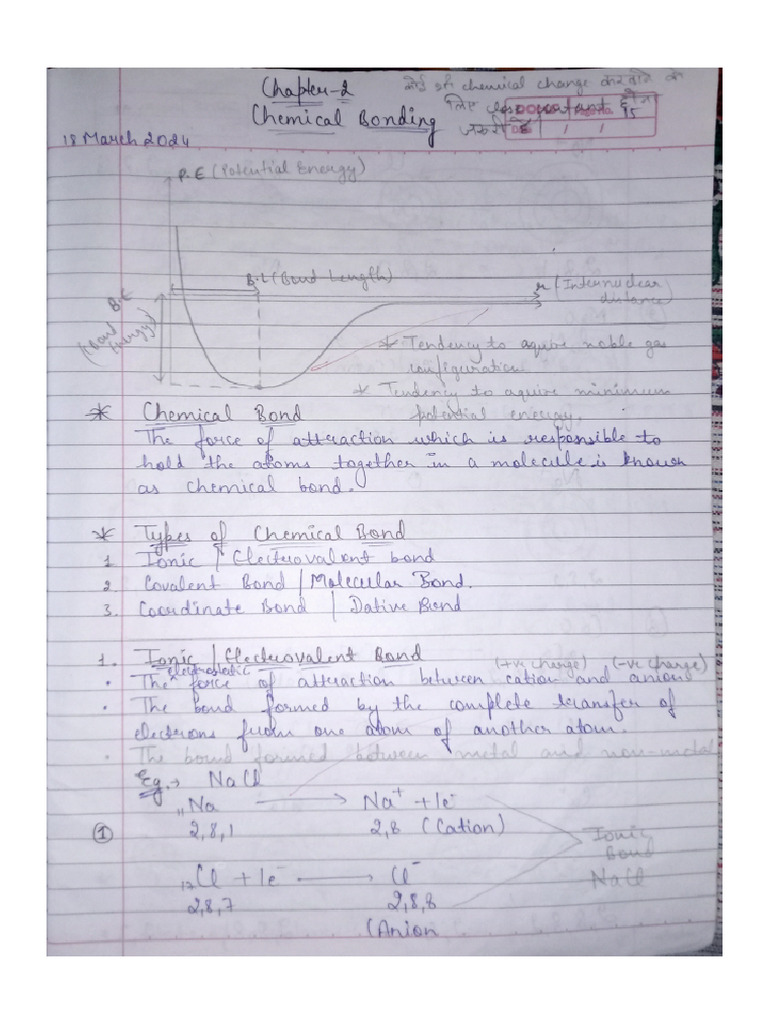 Chapter-2
Chemical Bonding
कोई भी chemical change करवाने के
लिए important होना
जरूरी है
18 March 2024
P.E (Potential Energy)
B.L (Bond Length)
r (Internuclear
distance)
B.E
(Bond
Energy)
* Tendency to aquire noble gas
configuration
* Tendency to aquire minimum
potential energy.
* Chemical Bond
The force of attraction which is responsible to
hold the atoms together in a molecule is known
as chemical bond.
* Types of Chemical Bond
1. Ionic / Electrovalent bond
2. Covalent Bond / Molecular Bond.
3. Coordinate Bond / Dative Bond
1. Ionic / Electrovalent Bond
(+ve charge) (-ve charge)
electrostatic
• The ^ force of attraction between cation and anion
• The bond formed by the complete transfer of
electrons from one atom of another atom.
• The bond formed between metal and non-metal
Eg. → NaCl
₁₁Na → Na⁺ + 1e⁻
① 2,8,1 2,8 (Cation)
Ionic
Bond
NaCl
₁₇Cl + 1e⁻ → Cl⁻
2,8,7 2,8,8
(Anion